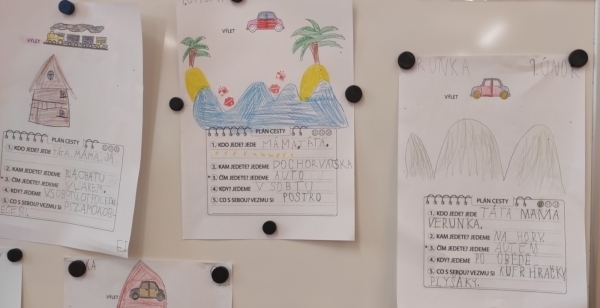 VÝLET
PLÁN CESTY
1. KDO JEDE? JEDE TÁTA, MÁMA, JÁ
2. KAM JEDETE? JEDEME NACHATU
3. ČÍM JEDETE? JEDEME VLAKEM.
4. KDY? JEDEME
5. CO S SEBOU? VEZMU SI
VÝLET
PLÁN CESTY
1. KDO JEDE? JEDE MÁMA TÁTA.
2. KAM JEDETE? JEDEME DOCHORVATSKA
3. ČÍM JEDETE? JEDEME AUTO
4. KDY? JEDEME V SOBTU
5. CO S SEBOU? VEZMU SI POSTRO
VÝLET
PLÁN CESTY
1. KDO JEDE? JEDE TÁTA MÁMA
VERUNKA.
2. KAM JEDETE? JEDEME NA HORY.
3. ČÍM JEDETE? JEDEME AUTEM
4. KDY? JEDEME PO OBĚDĚ.
5. CO S SEBOU? VEZMU SI KUFR HRAČKY
PLYŠÁKY.
VÝLET